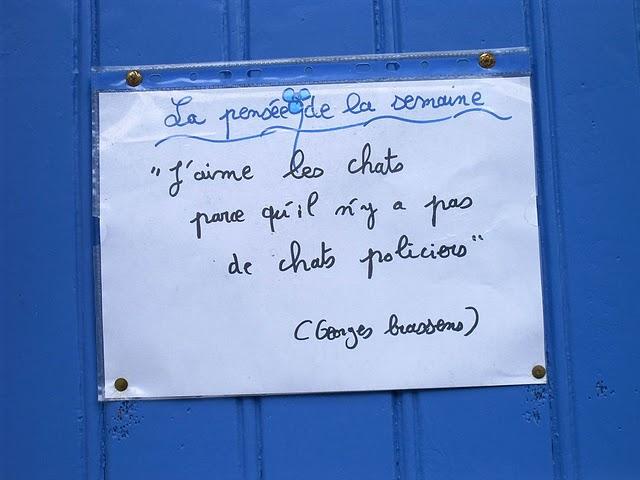 La pensée de la semaine
"J'aime les chats
parce qu'il n'y a pas
de chats policiers"
(Georges brassens)